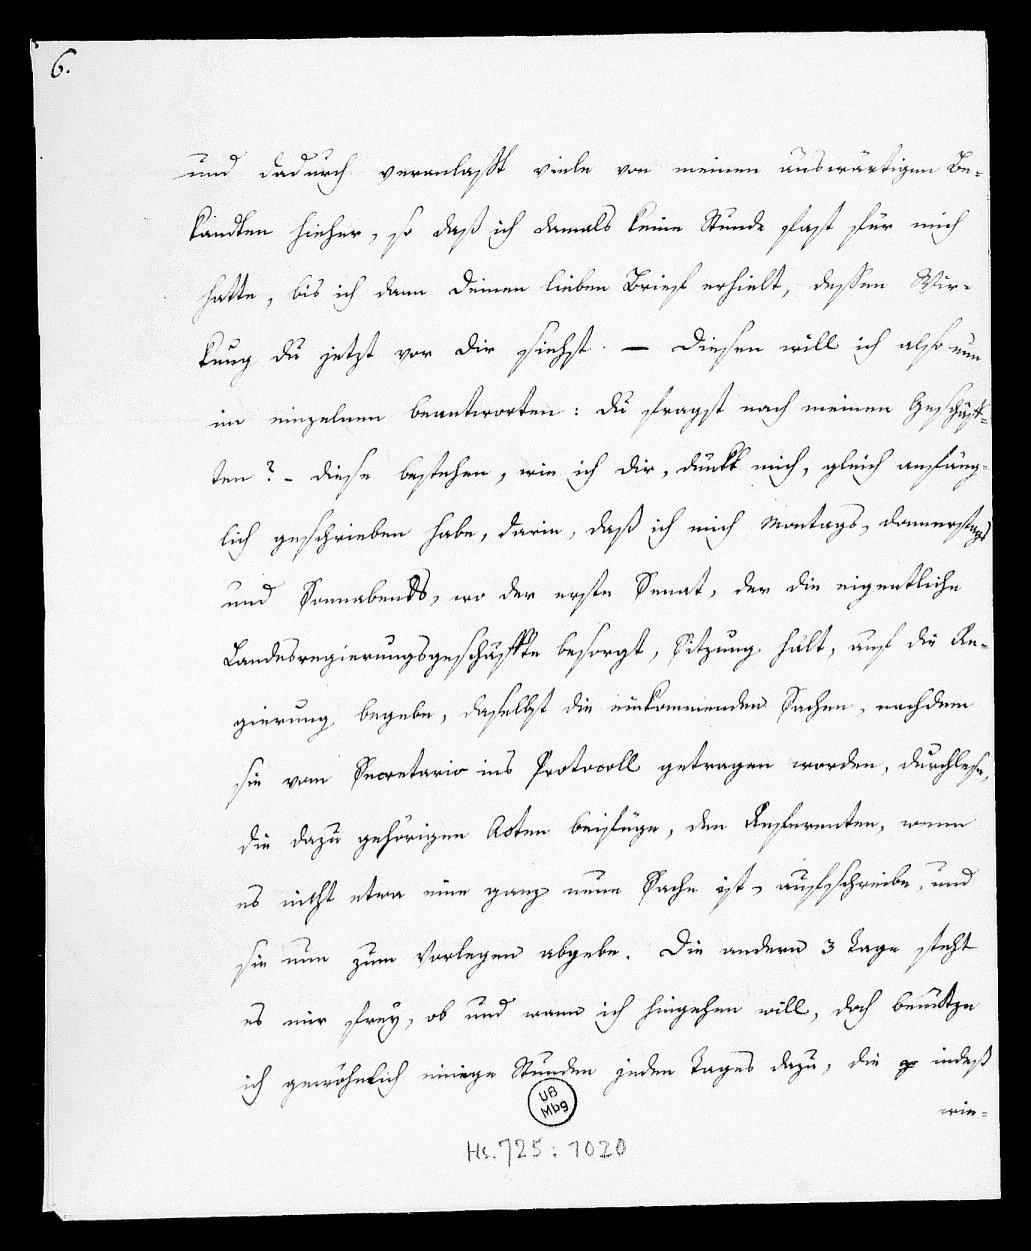 6.
und dadurch veranlaßt viele von meinen auswärtigen Be-
kandten hieher, so daß ich damals keine Stunde fast für mich
hatte, bis ich dann Deinen lieben Brief erhielt, dessen Wir-
kung du jetzt vor dir siehst. — Diesen will ich also nun
im einzelnen beantworten: du fragst nach meinen Geschäff-
ten? – diese bestehen, wie ich dir, dünkt mich, gleich anfäng-
lich geschrieben habe, darin, daß ich mich Montags, Donnerstags
und Sonnabends, wo der erste Senat, der die eigentliche
Landesregierungsgeschäffte besorgt, Sitzung hält, auf die Re-
gierung begebe, daselbst die einkommenden Sachen, nachdem
sie vom Secretario ins Protocoll getragen worden, durchlese,
die dazu gehörigen Acten beifüge, den Referenten, wenn
es nicht etwa eine ganz neue Sache ist, aufschreibe, und
sie nun zum Vorlegen abgebe. Die andern 3 Tage steht
es mir frey, ob und wann ich hingehen will, doch benutze
ich gewöhnlich einige Stunden jeden Tages dazu, die indeß
wie-
UB
Mbg
Hs. 725 : 1020